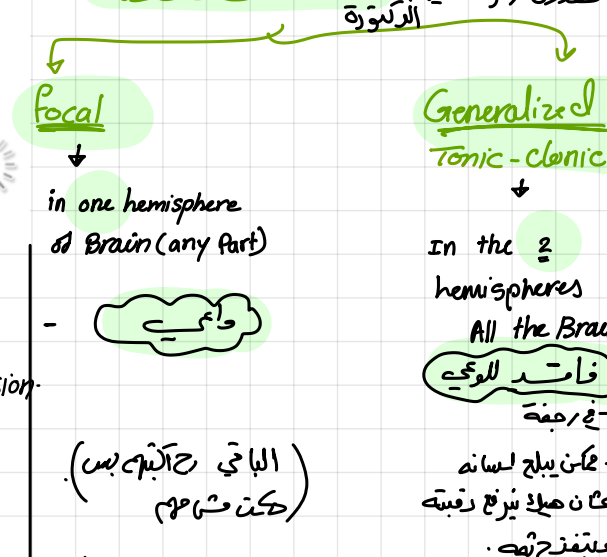 الدكتورة
Focal
in one hemisphere
of Brain (any Part)
- واعي
الباقي رح
Generalized
Tonic-clonic
In the 2
hemispheres
All the
فاقد للوعي
- في رجفة
ممكن يبلع لسانه
هيك نرفع رقبته